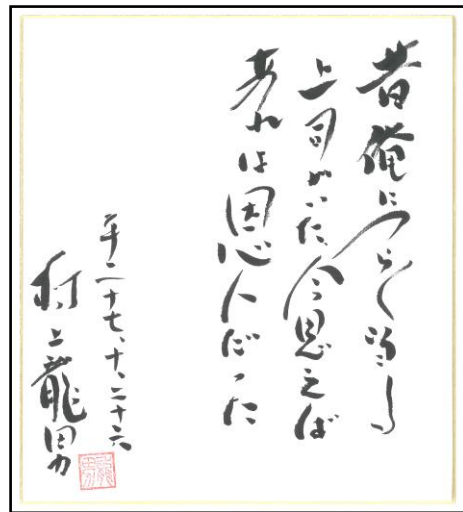 昔俺につらく当る
上司がいた、今思えば
あれは恩人だった
平二十七、十、二十六
村上龍男